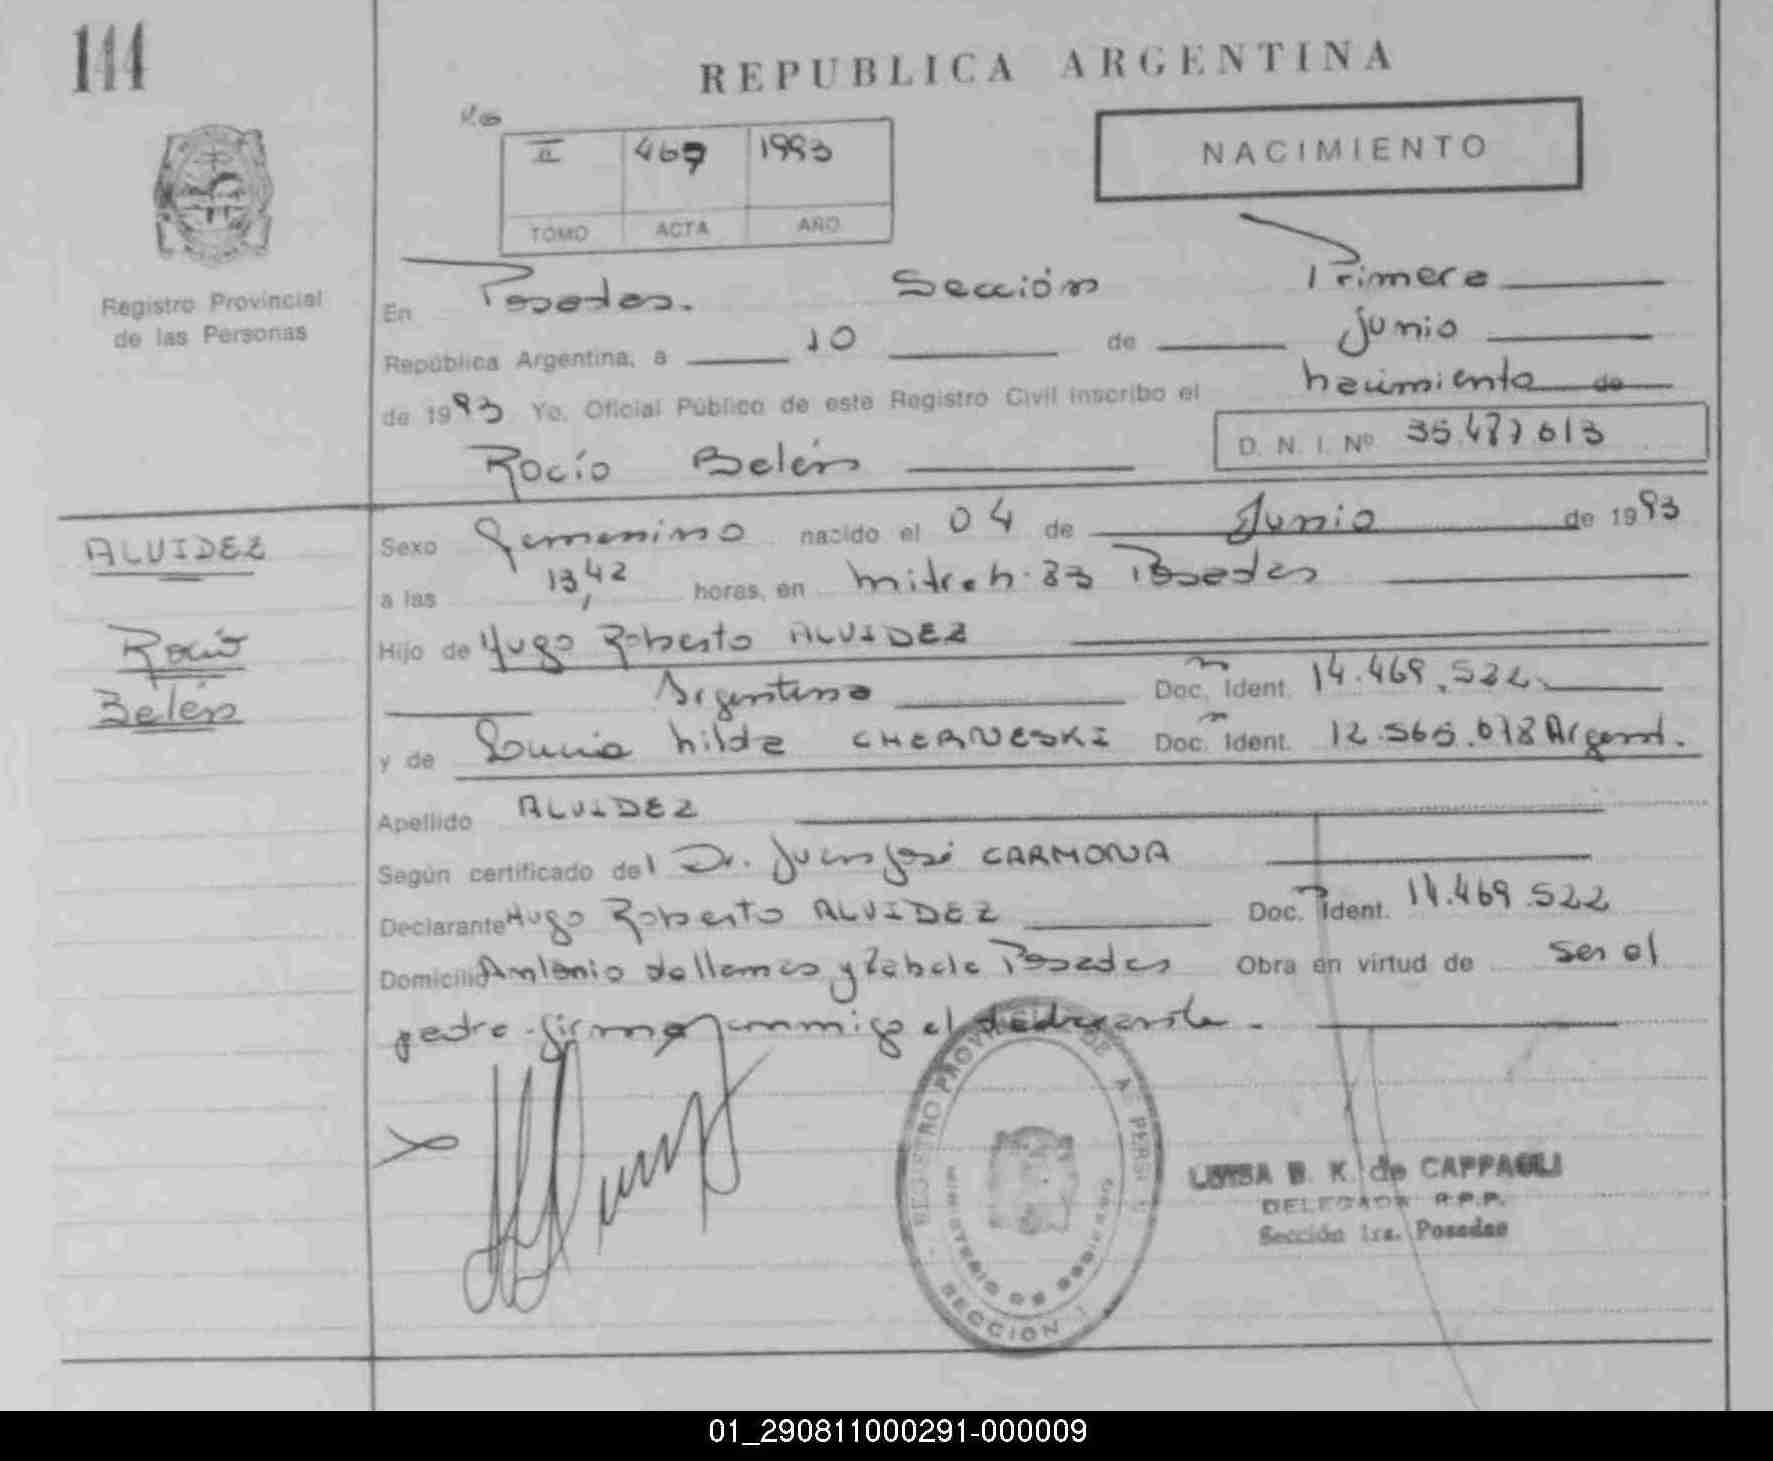 144
REPUBLICA ARGENTINA
II 469 1993
TOMO ACTA AÑO
NACIMIENTO
Registro Provincial
de las Personas
En Posadas. Sección Primera
República Argentina, a 10 de Junio
de 1993 Yo, Oficial Público de este Registro Civil inscribo el nacimiento de
Rocío Belén D. N. I. Nº 35.477.613
ALVIDEZ
Rocío
Belén
Sexo Femenino nacido el 04 de Junio de 1993
a las 13,42 horas, en Mitre n. 83 Posadas
Hijo de Hugo Roberto ALVIDEZ
Argentino Doc. Ident. 14.469.522
y de hilda CHERNESKI Doc. Ident. 12.565.078 Argent.
Apellido ALVIDEZ
Según certificado del Dr. Juan José CARMONA
Declarante Hugo Roberto ALVIDEZ Doc. Ident. 14.469.522
Domicilio Antonio de llamas y Zabala Posadas Obra en virtud de ser el
padre. firma conmigo el declarante.
REGISTRO PROVINCIAL DE LAS PERS
MINISTERIO DE GOBIERNO
SECCION 1
LUISA B. K. de CAPPAGLI
DELEGADA R.P.P.
Sección 1ra. Posadas
01_290811000291-000009